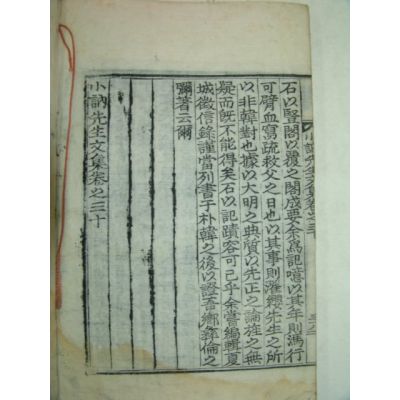 石以竪閣以覆之閣成要余爲記噫以其年則馮行
可臂血寫疏救父之日也以其事則濯纓先生之所
以非韓對也據以大明之典質以先正之論旌之無
疑而旣不能得矣石以記蹟容可已乎余嘗編輯夏
城徵信錄謹當列書于朴韓之後以證吾鄕彛倫之
彌著云爾
小訥先生文集卷之三十